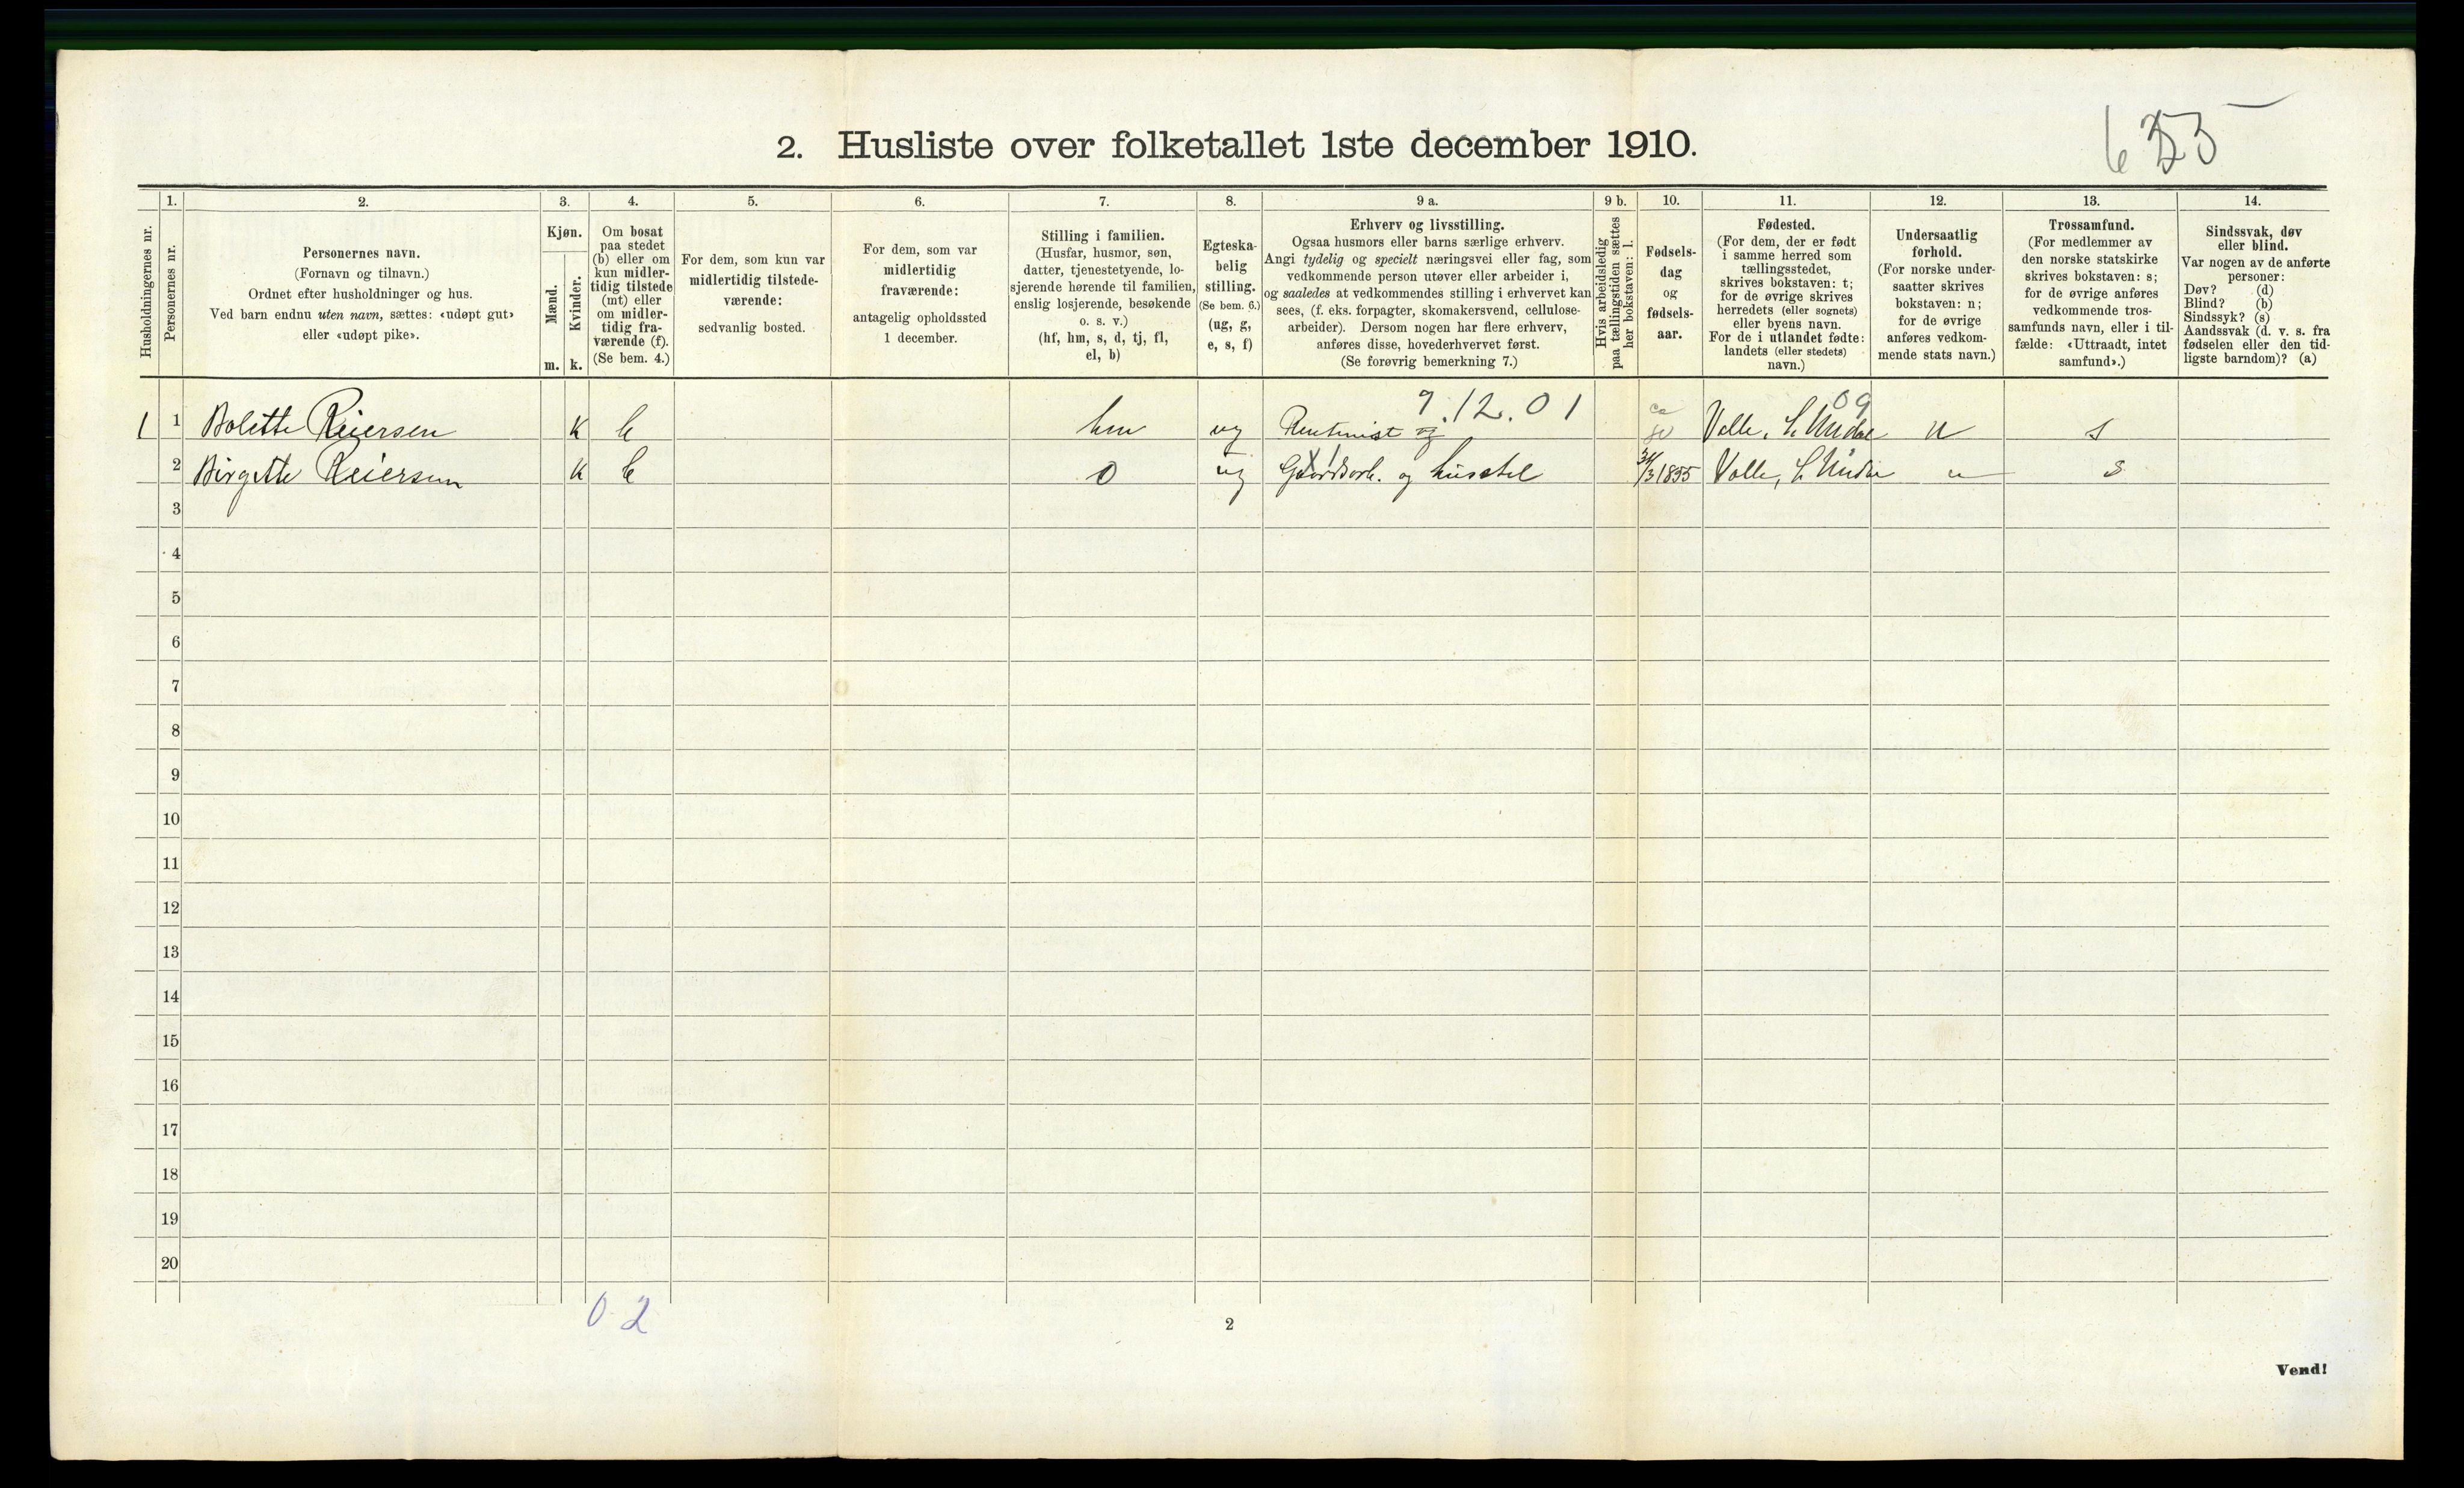 2. Husliste over folketallet 1ste december 1910.
Husholdningernes nr.
1.
Personernes nr.
2.
Personernes navn.
(Fornavn og tilnavn.)
Ordnet efter husholdninger og hus.
Ved barn endnu uten navn, sættes: «udøpt gut»
eller «udøpt pike».
3.
Kjøn.
Mænd.
Kvinder.
m. k.
4.
Om bosat
paa stedet
(b) eller om
kun midler-
tidig tilstede
(mt) eller
om midler-
tidig fra-
værende (f).
(Se bem. 4.)
5.
For dem, som kun var
midlertidig tilstede-
værende:
sedvanlig bosted.
6.
For dem, som var
midlertidig
fraværende:
antagelig opholdssted
1 december.
7.
Stilling i familien.
(Husfar, husmor, søn,
datter, tjenestetyende, lo-
sjerende hørende til familien,
enslig losjerende, besøkende
o. s. v.)
(hf, hm, s, d, tj, fl,
el, b)
8.
Egteska-
belig
stilling.
(Se bem. 6.)
(ug, g,
e, s, f)
9 a.
Erhverv og livsstilling.
Ogsaa husmors eller barns særlige erhverv.
Angi tydelig og specielt næringsvei eller fag, som
vedkommende person utøver eller arbeider i,
og saaledes at vedkommendes stilling i erhvervet kan
sees, (f. eks. forpagter, skomakersvend, cellulose-
arbeider). Dersom nogen har flere erhverv,
anføres disse, hovederhvervet først.
(Se forøvrig bemerkning 7.)
9 b.
Hvis arbeidsledig
paa tællingstiden sættes
her bokstaven: l.
10.
Fødsels-
dag
og
fødsels-
aar.
11.
Fødested.
(For dem, der er født
i samme herred som
tællingsstedet,
skrives bokstaven: t;
for de øvrige skrives
herredets (eller sognets)
eller byens navn.
For de i utlandet fødte:
landets (eller stedets)
navn.)
12.
Undersaatlig
forhold.
(For norske under-
saatter skrives
bokstaven: n;
for de øvrige
anføres vedkom-
mende stats navn.)
13.
Trossamfund.
(For medlemmer av
den norske statskirke
skrives bokstaven: s;
for de øvrige anføres
vedkommende tros-
samfunds navn, eller i til-
fælde: «Uttraadt, intet
samfund».)
14.
Sindssvak, døv
eller blind.
Var nogen av de anførte
personer:
Døv? (d)
Blind? (b)
Sindssyk? (s)
Aandssvak (d. v. s. fra
fødselen eller den tid-
ligste barndom)? (a)
9.12.01 09
1 1 Bolette Reiersen K b hm ug Rentenist og Valle, S. Undal n s
2 Birgitte Reiersen K b ug Gaardsarb. og husstel 1855 Valle, S. Undal n s
3
4
5
6
7
8
9
10
11
12
13
14
15
16
17
18
19
20
0 2
2
Vend!